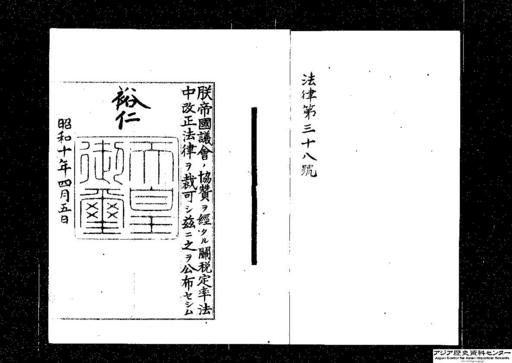 法律第三十八號
朕帝國議會ノ協贊ヲ經タル關税定率法
中改正法律ヲ裁可シ茲ニ之ヲ公布セシム
裕仁
天皇
御璽
昭和十年四月五日
アジア歴史資料センター
Japan Center for Asian Historical Records